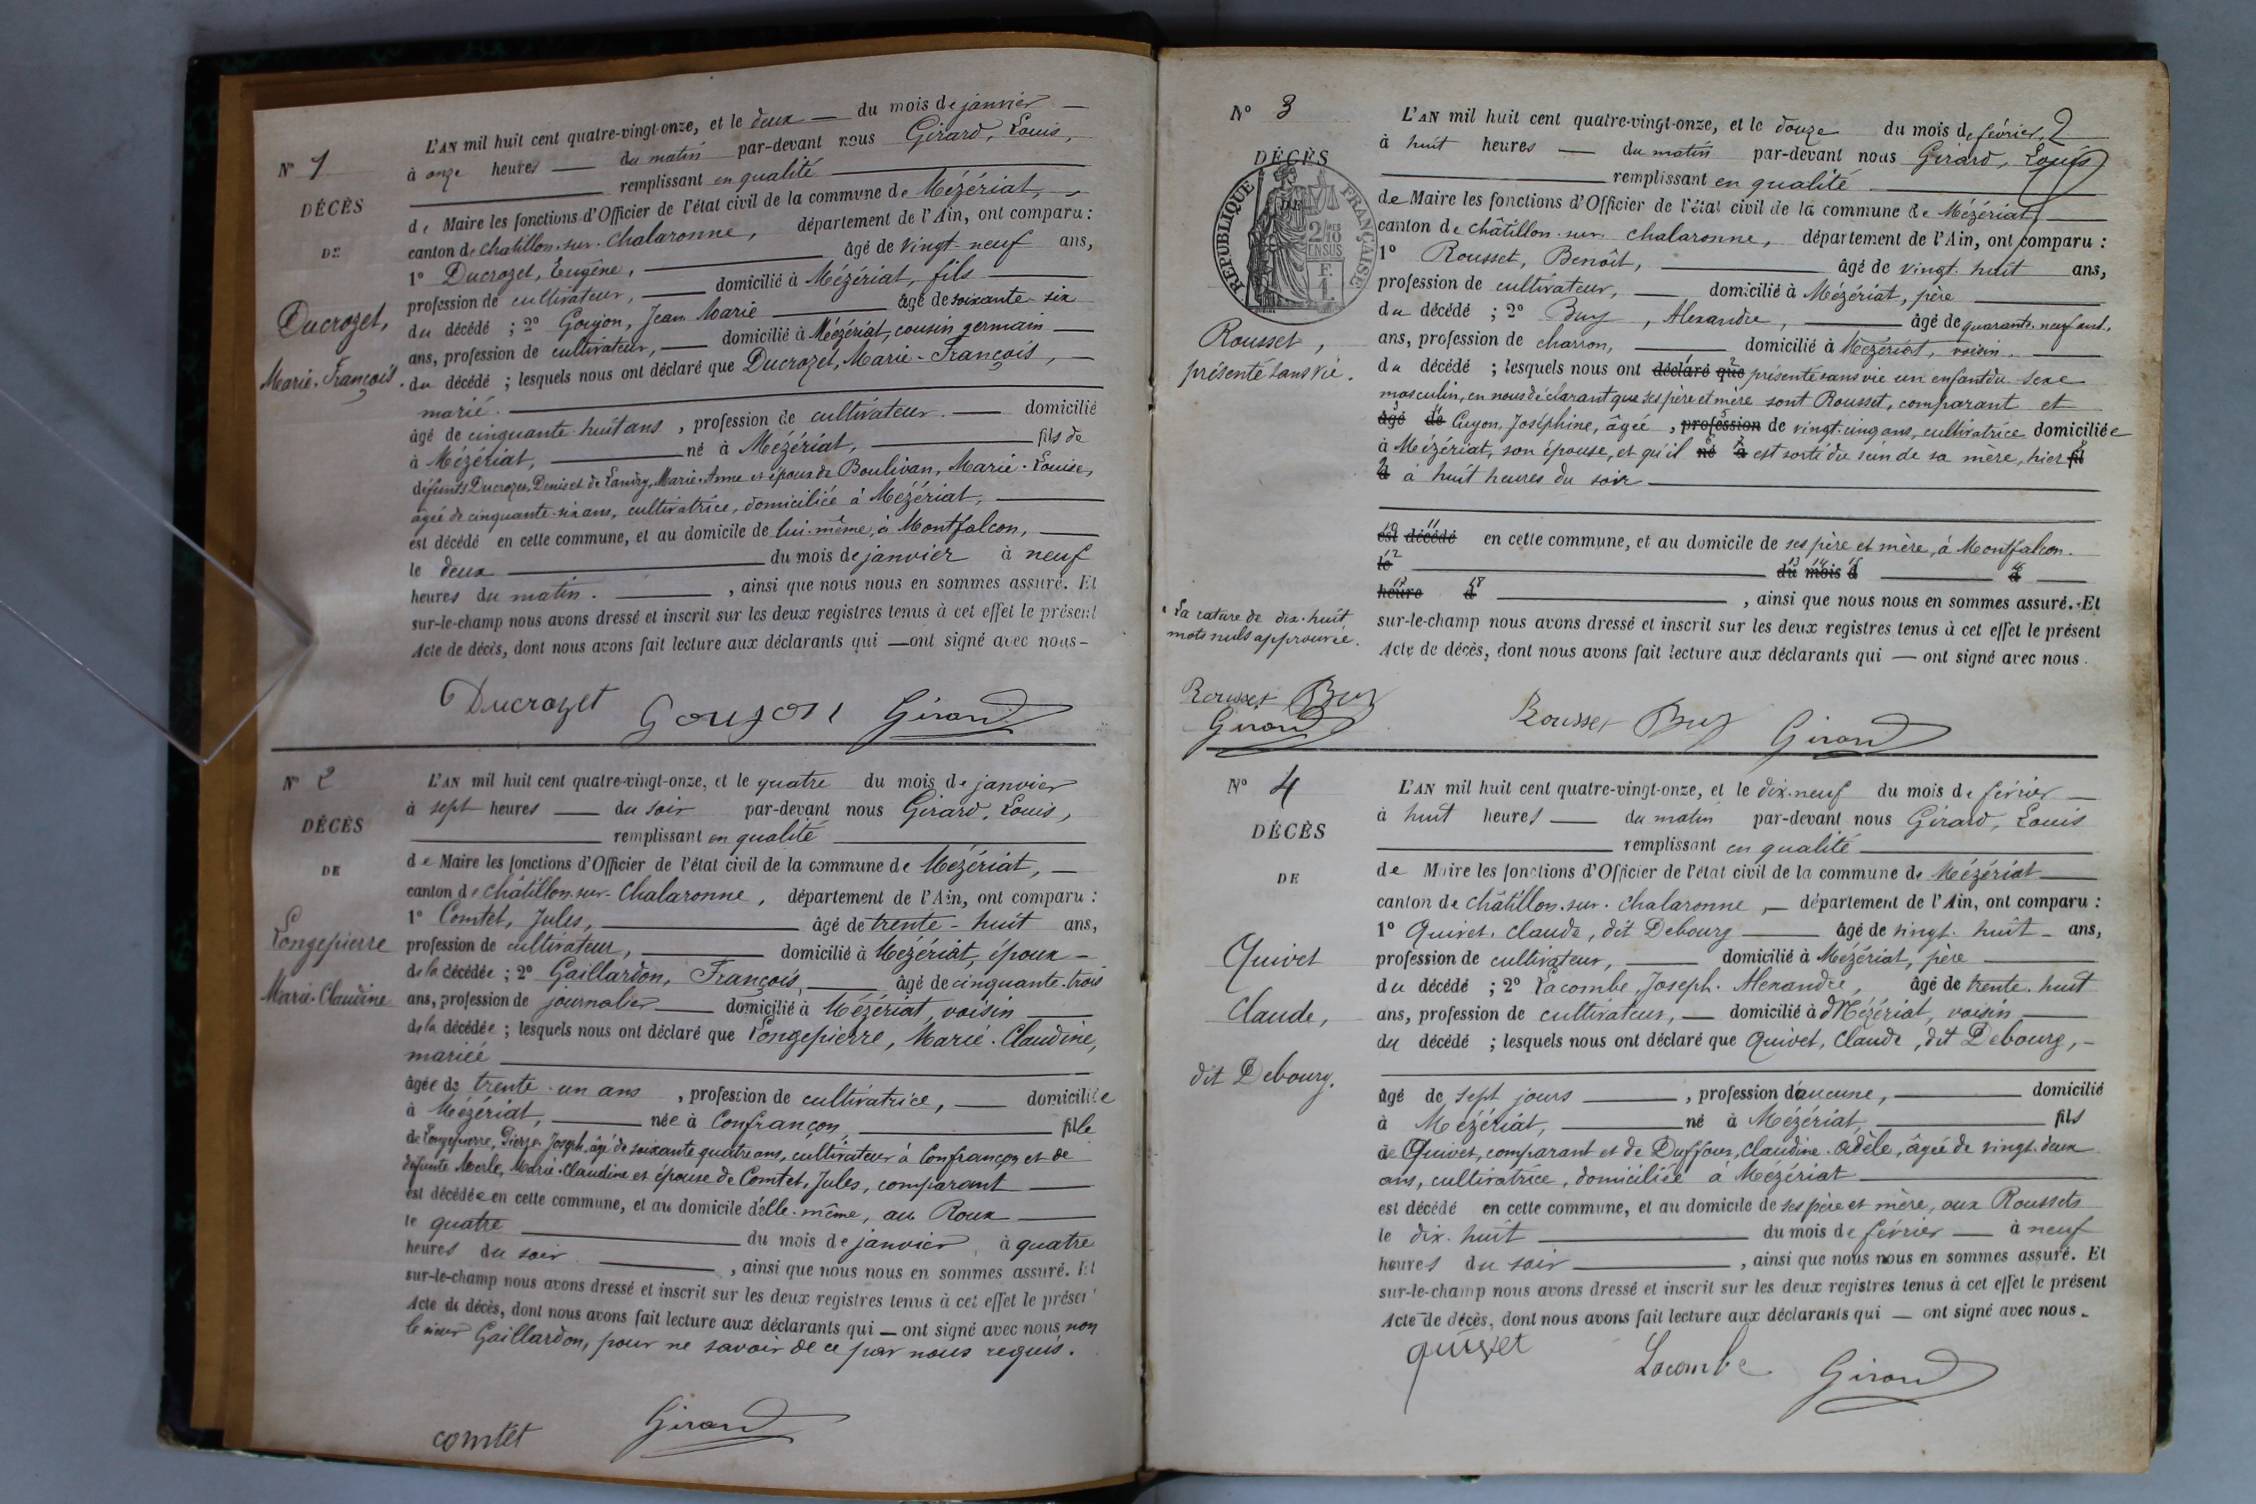 N° 1
DÉCÈS
DE
Ducrozet,
Marie-François.
L'AN mil huit cent quatre-vingt-onze, et le deux — du mois de janvier —
à onze heures — du matin par-devant nous Girard, Louis,
remplissant en qualité
de Maire les fonctions d'Officier de l'état civil de la commune de Mézériat, —
canton de Châtillon-sur-Chalaronne, département de l'Ain, ont comparu :
1° Ducrozet, Eugène, — âgé de vingt-neuf ans,
profession de cultivateur, — domicilié à Mézériat, fils —
du décédé ; 2° Goujon, Jean Marie — âgé de soixante-six
ans, profession de cultivateur, — domicilié à Mézériat, cousin germain —
du décédé ; lesquels nous ont déclaré que Ducrozet, Marie-François, —
marié. —
âgé de cinquante-huit ans, profession de cultivateur. — domicilié
à Mézériat, — né à Mézériat, — fils de
défunts Ducrozet, Denis et de Landry, Marie-Anne et époux de Boulivan, Marie-Louise,
âgée de cinquante-six ans, cultivatrice, domiciliée à Mézériat, —
est décédé en cette commune, et au domicile de lui-même, à Montfalcon, —
le deux — du mois de janvier à neuf
heures du matin. — , ainsi que nous nous en sommes assuré. Et
sur-le-champ nous avons dressé et inscrit sur les deux registres tenus à cet effet le présent
Acte de décès, dont nous avons fait lecture aux déclarants qui — ont signé avec nous -
Ducrozet Goujon Girard
N° 2
DÉCÈS
DE
Longepierre
Marie-Claudine
L'AN mil huit cent quatre-vingt-onze, et le quatre du mois de janvier
à sept heures — du soir par-devant nous Girard, Louis,
remplissant en qualité
de Maire les fonctions d'Officier de l'état civil de la commune de Mézériat, —
canton de Châtillon-sur-Chalaronne, département de l'Ain, ont comparu :
1° Comtet, Jules, — âgé de trente-huit ans,
profession de cultivateur, — domicilié à Mézériat, époux —
de la décédée ; 2° Gaillardon, François, — âgé de cinquante-trois
ans, profession de journalier — domicilié à Mézériat, voisin —
de la décédée ; lesquels nous ont déclaré que Longepierre, Marie-Claudine,
mariée —
âgée de trente-un ans , profession de cultivatrice, — domiciliée
à Mézériat, — née à Confrançon, — fille
de Longepierre, Pierre-Joseph, âgé de soixante quatre ans, cultivateur à Confrançon et de
défunte Merle, Marie-Claudine et épouse de Comtet, Jules, comparant —
est décédée en cette commune, et au domicile d'elle-même, au Roux —
le quatre — du mois de janvier, à quatre
heures du soir — , ainsi que nous nous en sommes assuré. Et
sur-le-champ nous avons dressé et inscrit sur les deux registres tenus à cet effet le présent
Acte de décès, dont nous avons fait lecture aux déclarants qui — ont signé avec nous, non
le sieur Gaillardon, pour ne savoir de ce par nous requis.
comtet Girard
N° 3
DÉCÈS
DE
RÉPUBLIQUE FRANÇAISE
2/10 EN SUS
F. 1.
Rousset,
présenté sans vie.
2
L'AN mil huit cent quatre-vingt-onze, et le douze du mois de février,
à huit heures — du matin par-devant nous Girard, Louis
remplissant en qualité —
de Maire les fonctions d'Officier de l'état civil de la commune de Mézériat, —
canton de Châtillon-sur-Chalaronne, département de l'Ain, ont comparu :
1° Rousset, Benoît, — âgé de vingt-huit ans,
profession de cultivateur, — domicilié à Mézériat, père —
du décédé ; 2° Buy, Alexandre, — âgé de quarante-neuf ant.
ans, profession de charron, — domicilié à Mézériat, voisin. —
du décédé ; lesquels nous ont déclaré 1 que 2 présenté sans vie un enfant du sexe
masculin, en nous déclarant que ses père et mère sont Rousset, comparant et
âgé 3 de 4 Guyon, Joséphine, âgée , profession 5 de vingt-cinq ans, cultivatrice domiciliée
à Mézériat, son épouse, et qu'il né 6 à 7 est sorti du sein de sa mère, hier fil 8
à 9 à huit heures du soir —
est 10 décédé 11 en cette commune, et au domicile de ses père et mère, à Montfalcon.
le 12 — du 13 mois 14 d 15 — à 16 —
heure 17 d 18 — , ainsi que nous nous en sommes assuré. - Et
sur-le-champ nous avons dressé et inscrit sur les deux registres tenus à cet effet le présent
Acte de décès, dont nous avons fait lecture aux déclarants qui — ont signé avec nous.
La rature de dix-huit
mots nuls approuvée.
Rousset Buy
Girard
Rousset Buy Girard
N° 4
DÉCÈS
DE
Quivet
Claude,
dit Debourg.
L'AN mil huit cent quatre-vingt-onze, et le dix-neuf du mois de février —
à huit heures — du matin par-devant nous Girard, Louis
remplissant en qualité —
de Maire les fonctions d'Officier de l'état civil de la commune de Mézériat —
canton de Châtillon-sur-Chalaronne, — département de l'Ain, ont comparu :
1° Quivet, Claude, dit Debourg — âgé de vingt-huit - ans,
profession de cultivateur, — domicilié à Mézériat, père —
du décédé ; 2° Lacombe, Joseph-Alexandre, âgé de trente-huit
ans, profession de cultivateur, — domicilié à Mézériat, voisin —
du décédé ; lesquels nous ont déclaré que Quivet, Claude, dit Debourg, -
âgé de sept jours — , profession d'aucune, — domicilié
à Mézériat, — né à Mézériat, — fils
de Quivet, comparant et de Duffour, Claudine-Adèle, âgée de vingt-deux
ans, cultivatrice, domiciliée à Mézériat —
est décédé en cette commune, et au domicile de ses père et mère, aux Roussets
le dix-huit — du mois de février — à neuf
heures du soir — , ainsi que nous nous en sommes assuré. Et
sur-le-champ nous avons dressé et inscrit sur les deux registres tenus à cet effet le présent
Acte de décès, dont nous avons fait lecture aux déclarants qui — ont signé avec nous.
quivet Lacombe Girard